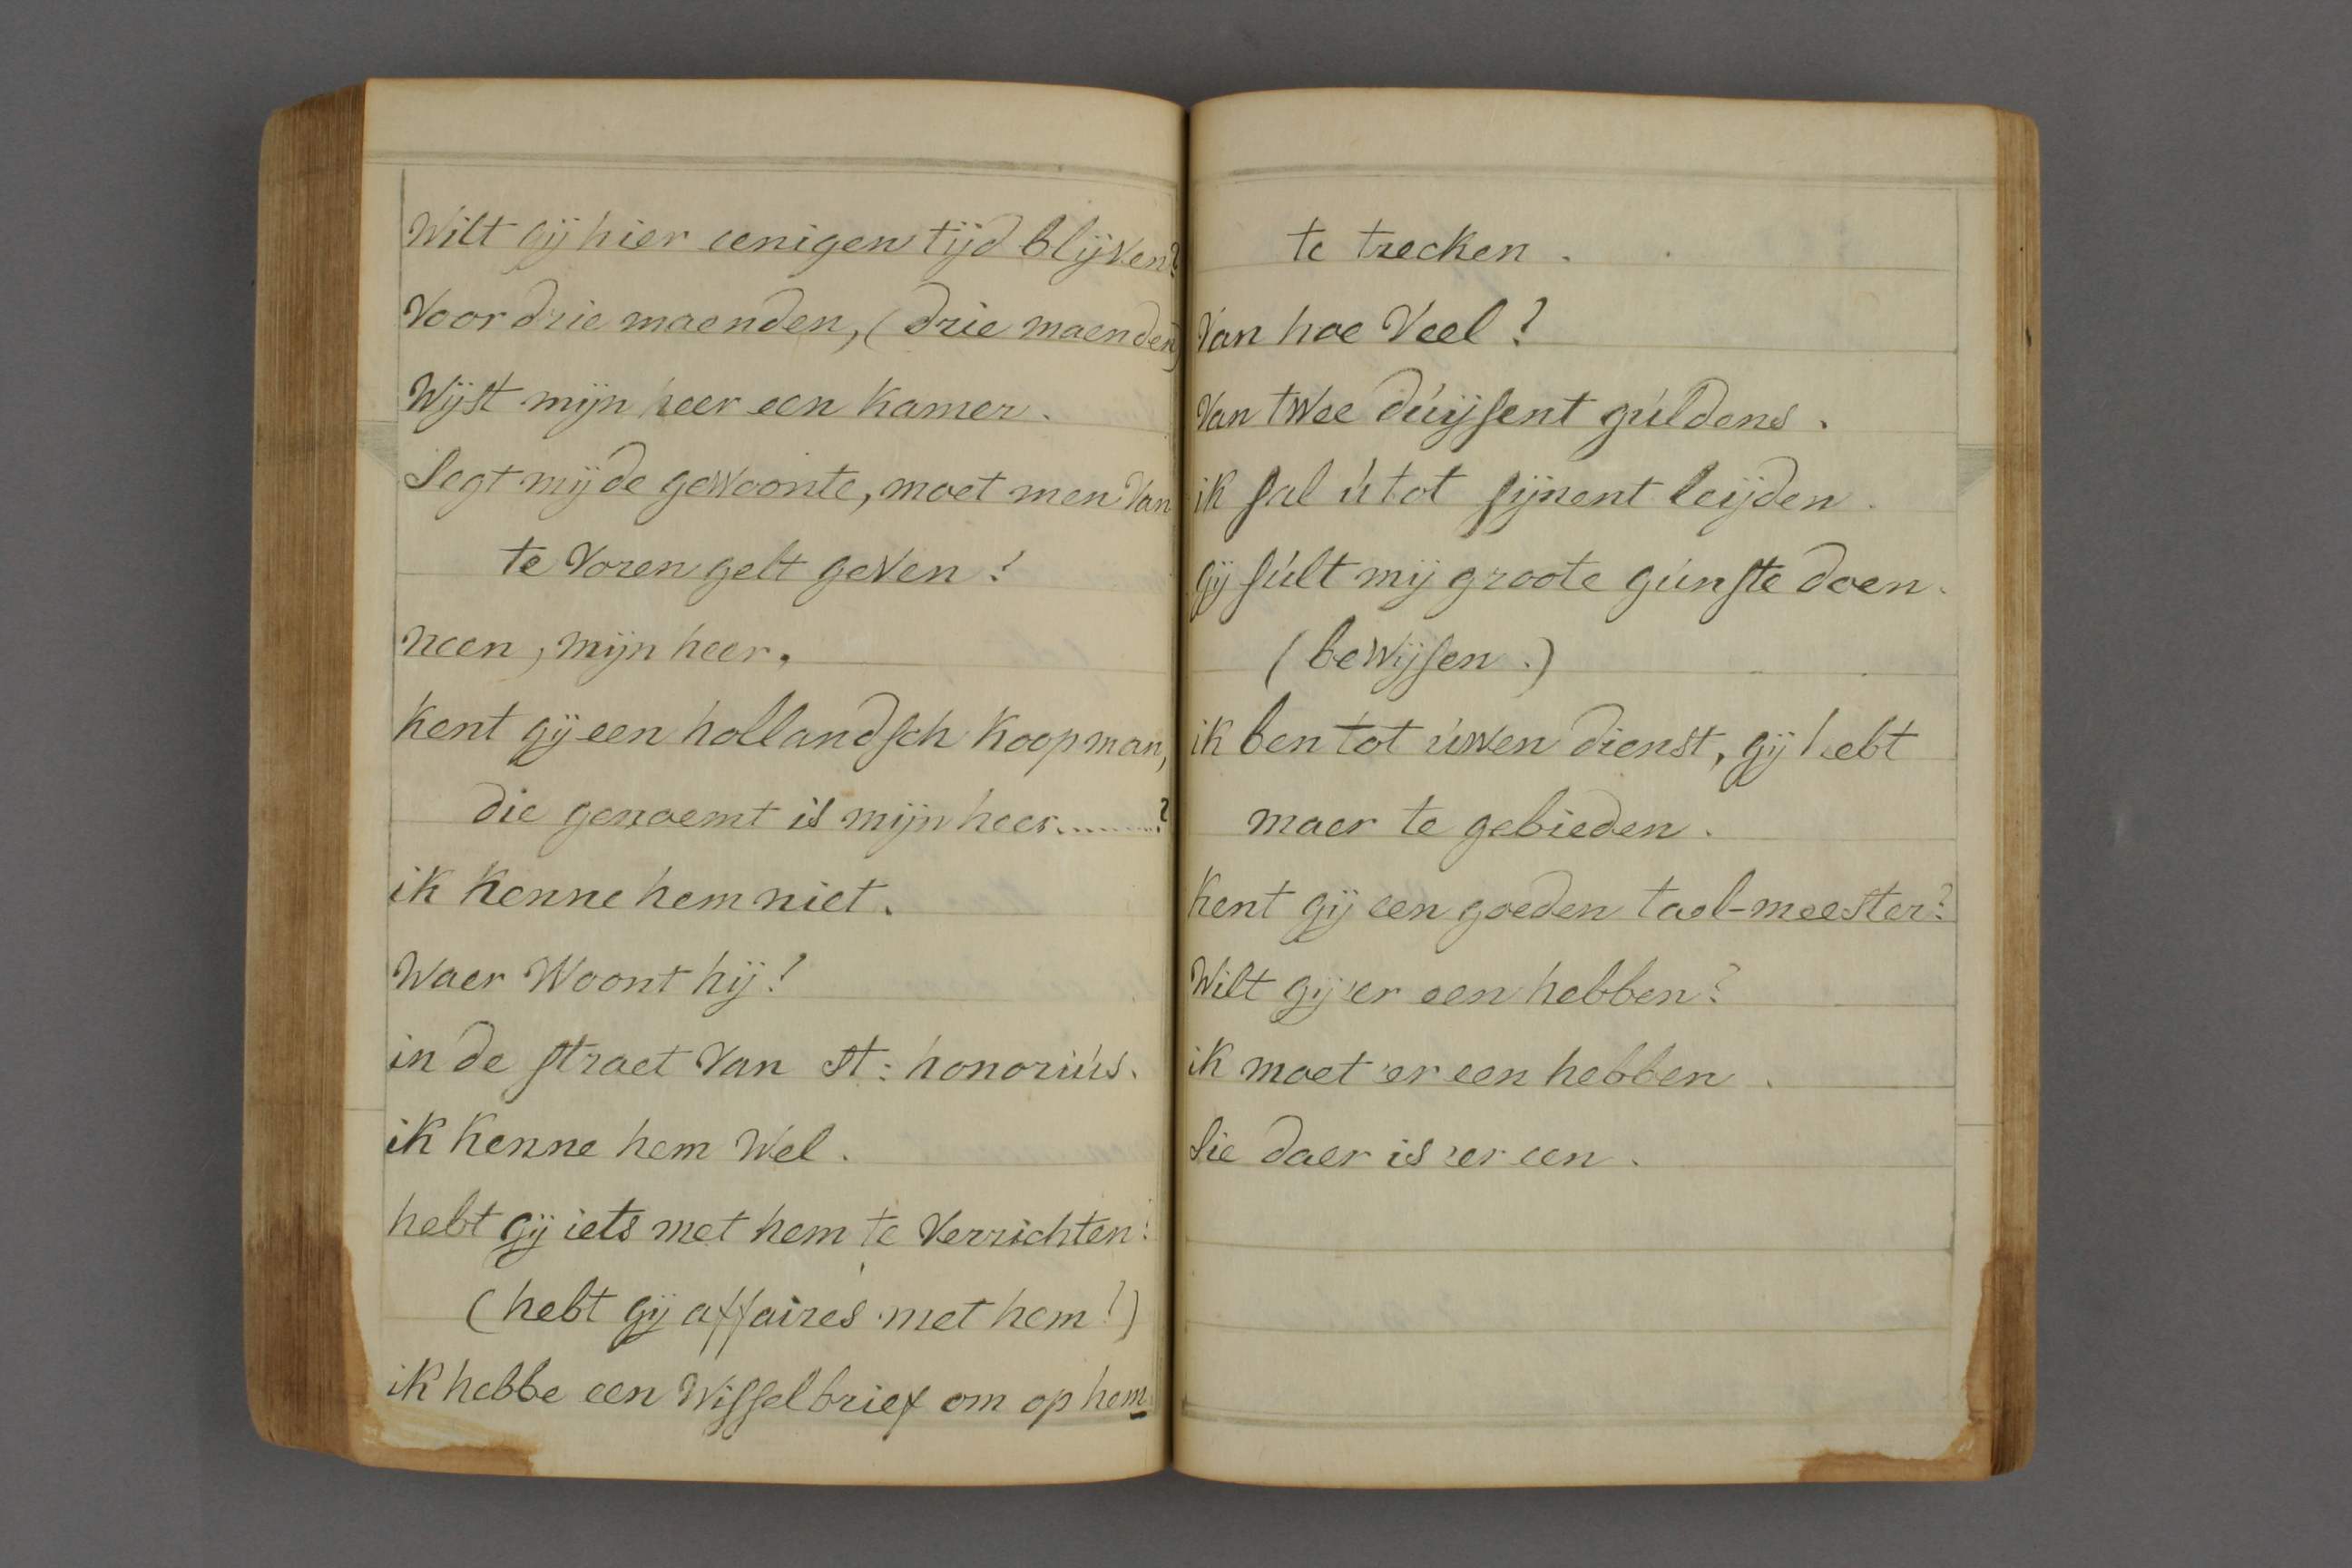 Wilt gij hier eenigen tijd blijven?
Voor drie maenden, (drie maenden)
Wijst mijn heer een kamer.
Segt mij de gewoonte, moet men Van
te Voren gelt geven?
neen, mijn heer.
kent gij een hollandsch koopman,
die genoemt is mijn heer.........?
ik kenne hem niet.
Waer Woont hij?
in de straet Van St: honoriús.
ik kenne hem Wel.
hebt gij iets met hem te Verrichten?
(hebt gij affaires met hem?)
ik hebbe een Wisselbrief om op hem
te trecken.
Van hoe Veel?
Van twee dúijsent gúldens.
ik sal ú tot sijnent leijden.
gij súlt mij groote gúnste doen.
(bewijsen.)
ik ben tot úwen dienst, gij hebt
maer te gebieden.
kent gij een goeden tael-meester?
Wilt gij 'er een hebben?
ik moet 'er een hebben.
Sie daer is 'er een.